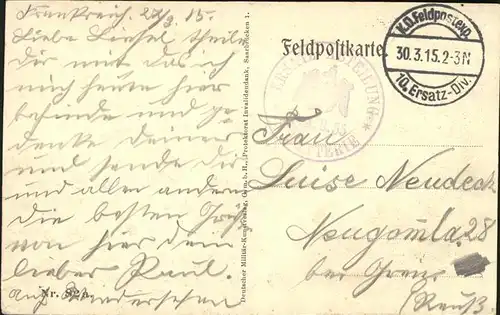 Frankreich. 29/3. 15.
Liebe Liesel theile
dir mit das ich
mich heute hier
befinde und ge
denke deiner
und sende dir
und allen andern
die besten Grüße
von hier dein
lieber Paul.
auf Wiedersehen
Nr. 82a.
Deutscher Militär-Kunstverlag, Gem. b. H., Protektorat Invalidendank, Saarbrücken 1.
Feldpostkarte
K.D. Feldpostexp.
30.3.15.2-3N
10. Ersatz-Div.
ERSATZ ABTEILUNG
Frau
Luise Neudeck
Neugomla 28
bei Greiz
(Reuß)